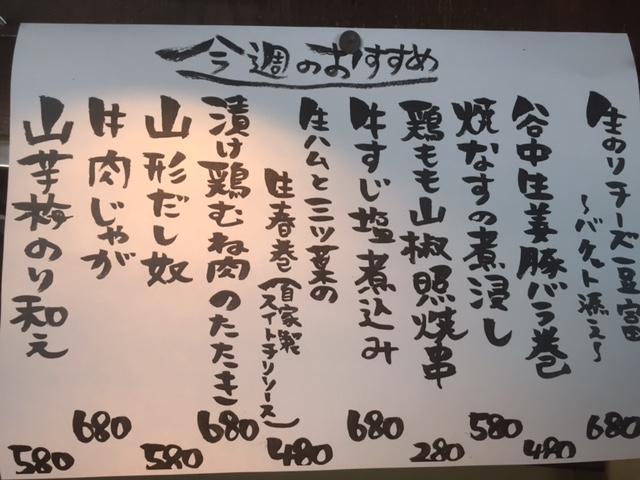 今週のおすすめ
生のりチーズ豆富
〜バケット添え〜
680
谷中生姜豚バラ巻
480
焼なすの煮浸し
580
鶏もも山椒照焼串
280
牛すじ塩煮込み
680
生ハムと三ツ葉の
生春巻(自家製
スイートチリソース)
480
漬け鶏むね肉のたたき
680
山形だし奴
580
牛肉じゃが
680
山芋梅のり和え
580